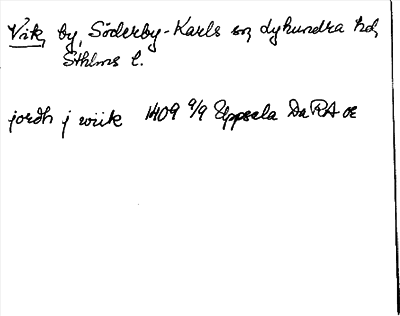 Vik, by, Söderby-Karls sn, Lyhundra hd,
Sthlms l.
jordh j wiik 1409 9/9 Uppsala DaRA or